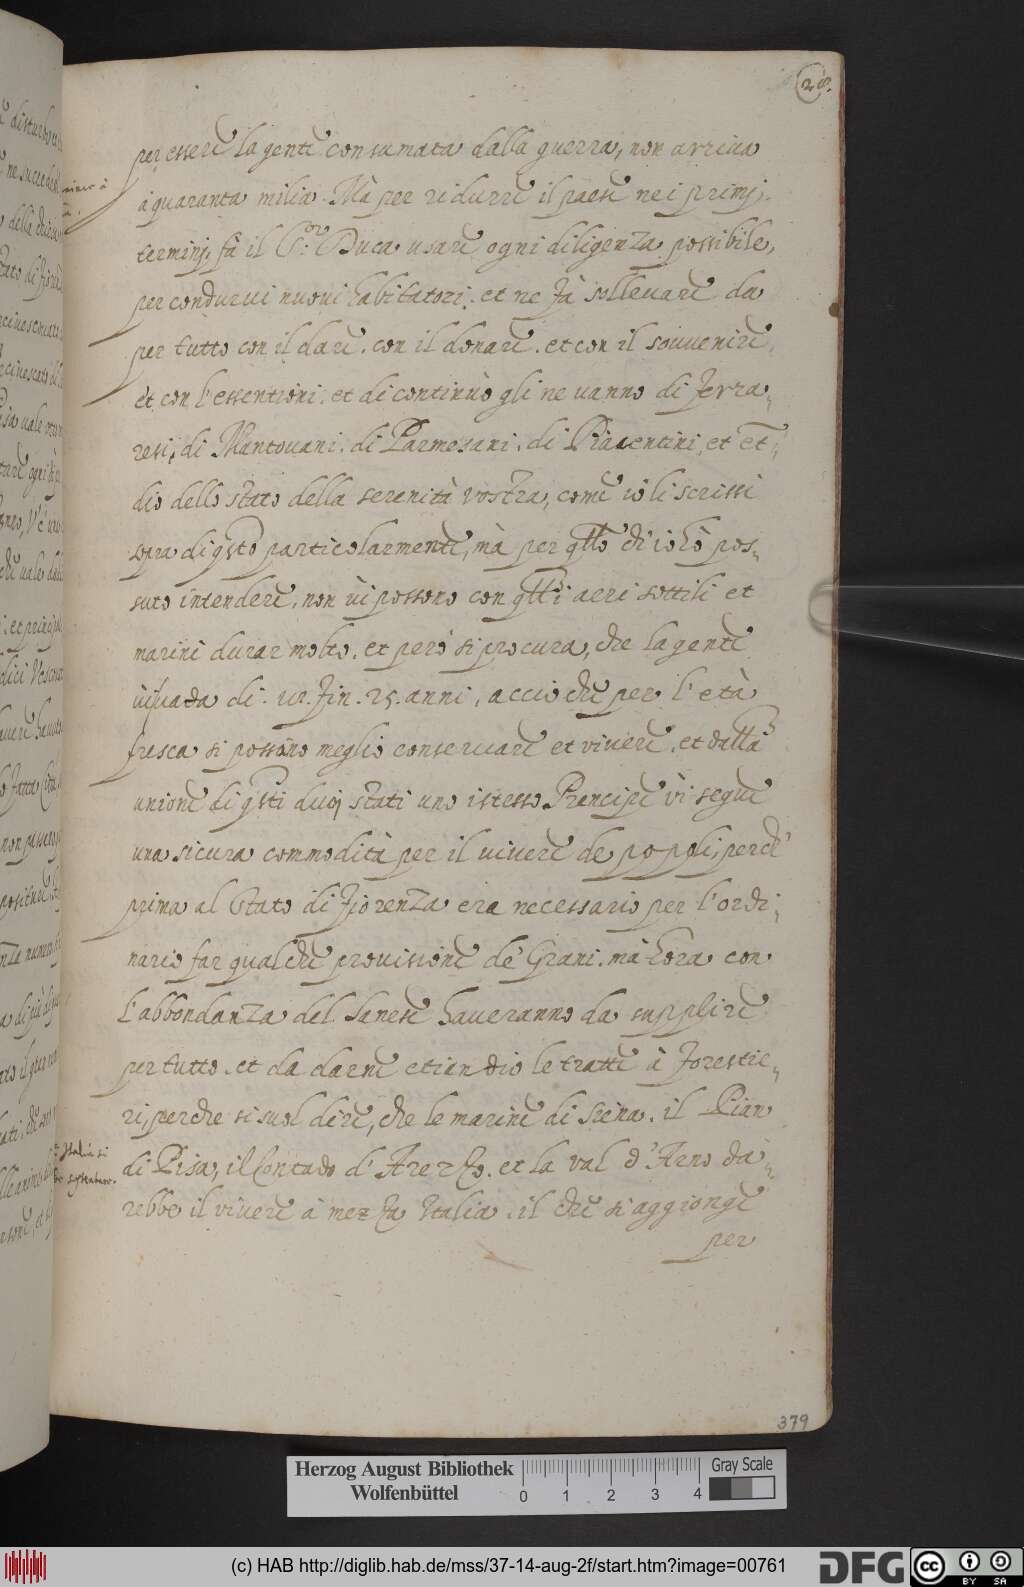 28.
per essere la gente consumata dalla guerra, non arriua
à quaranta milia. Mà per ridurre il paese nei primj.
terminj, fà il S.or Duca usare ogni diligenza possibile,
per condurui nuoui habitatori. et ne fà solleuare da
per tutto con il dare. con il donare. et con il souuenire,
et con l'essentioni. et di continuo gli ne uanno di Ferra-
resi, di Mantouani. di Parmesani. di Piacentini, et et-
dio dello stato della serenità vostra, come io li scrissi
sopra di qsto particolarmente, mà per qllo ch'io hò pos-
suto intendere, non ui possono con qlli aeri sottili et
marini durar molto. et però si procura, che la gente
uada di . in fin . 25. anni, acciò che per l'età
fresca si possino meglio conseruare et viuere. et dalla
unione di qsti duoj stati uno istesso Prencipe vi segue
una sicura commodità per il uiuere de popoli, perche
prima al Stato di Fiorenza era necessario per l'ordi-
nario far qualche prouisione de Grani. mà hora con
l'abbondanza del Sanese haueranno da supplire
per tutto. et da darne etian dio le tratte à forestie-
ri, perche si suol dire, che le marine di Siena. il Pian
di Pisa, il Contado d'Arezzo. et la val d'Arno da-
rebbe il viuere à mezza Italia. il che si aggionge
per
379
Herzog August Bibliothek
Wolfenbüttel
0 1 2 3 4
Gray Scale
(c) HAB http://diglib.hab.de/mss/37-14-aug-2f/start.htm?image=00761
DFG
cc BY SA